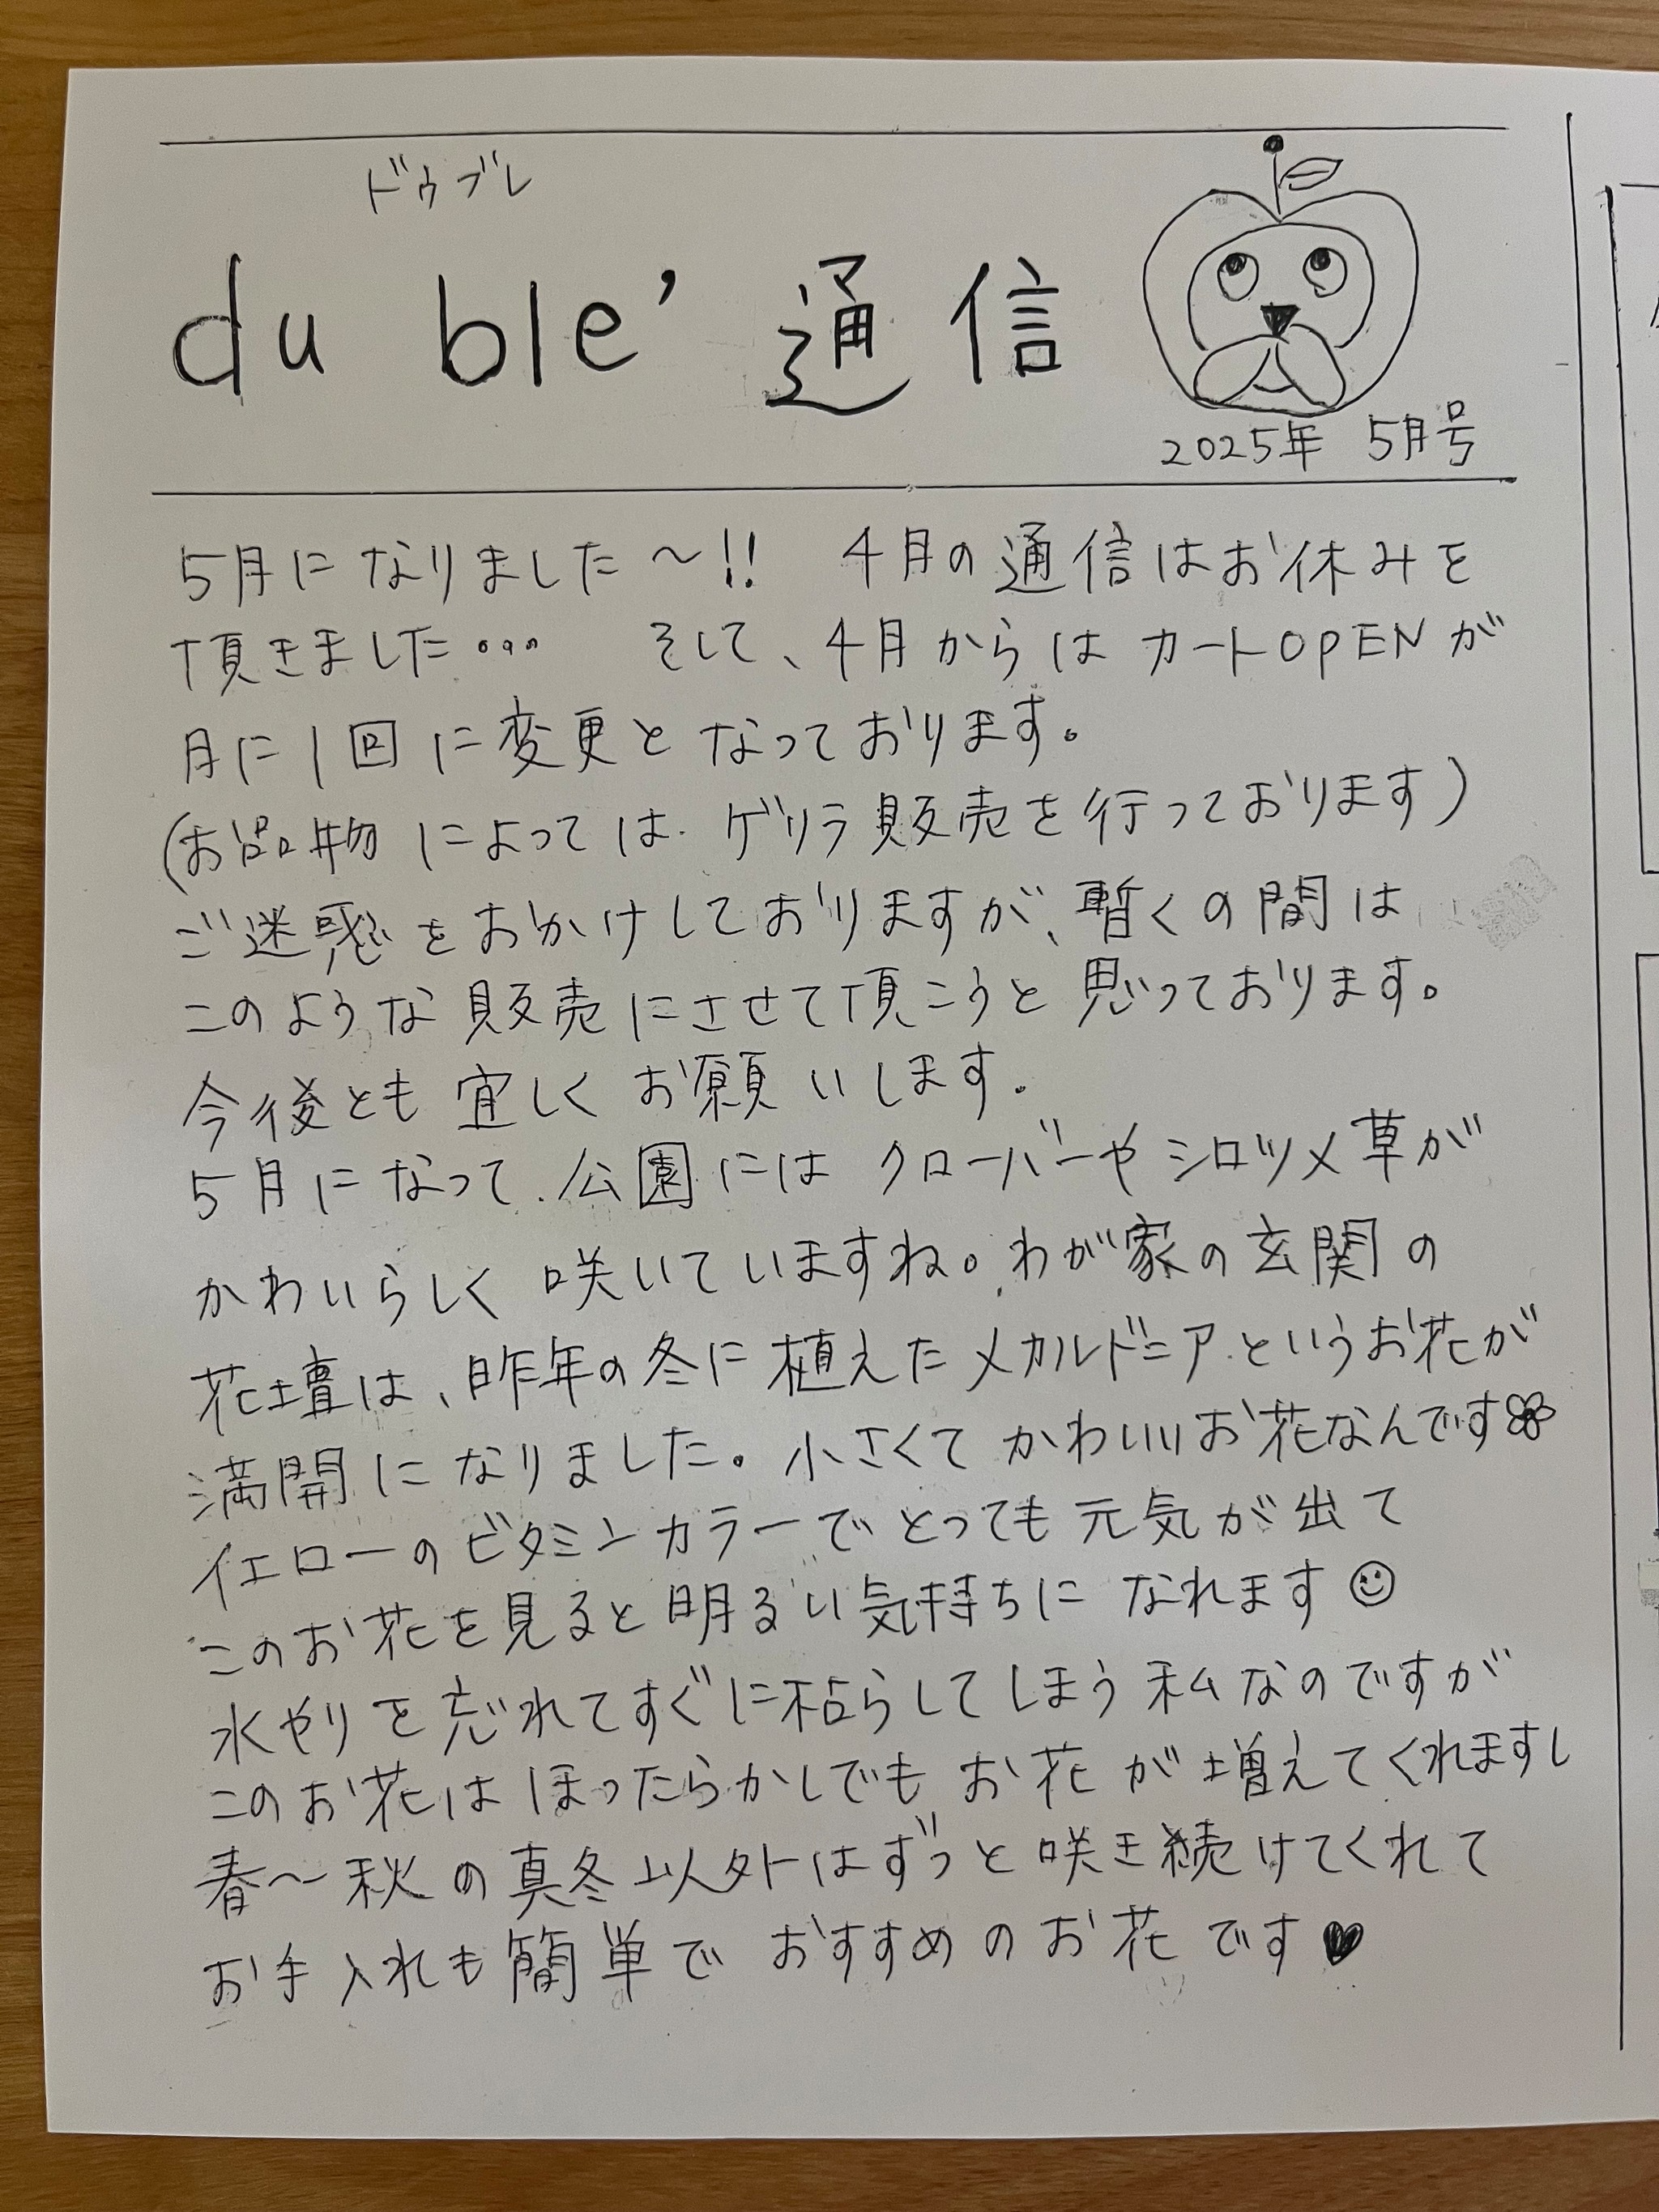 ドゥブレ
du ble' 通信
2025年 5月号
5月になりました〜!! 4月の通信はお休みを
頂きました… そして、4月からはカートOPENが
月に1回に変更となっております。
(お品物によっては ゲリラ販売を行っております)
ご迷惑をおかけしておりますが、暫くの間は
このような販売にさせて頂こうと思っております。
今後とも宜しくお願いします。
5月になって、公園にはクローバーやシロツメ草が
かわいらしく咲いていますね。わが家の玄関の
花壇は、昨年の冬に植えたメカルドニアというお花が
満開になりました。小さくてかわいいお花なんです
イエローのビタミンカラーでとっても元気が出て
このお花を見ると明るい気持ちになれます☺
水やりを忘れてすぐに枯らしてしまう私なのですが
このお花はほったらかしでもお花が増えてくれますし
春〜秋の真冬以外はずっと咲き続けてくれて
お手入れも簡単でおすすめのお花です♥